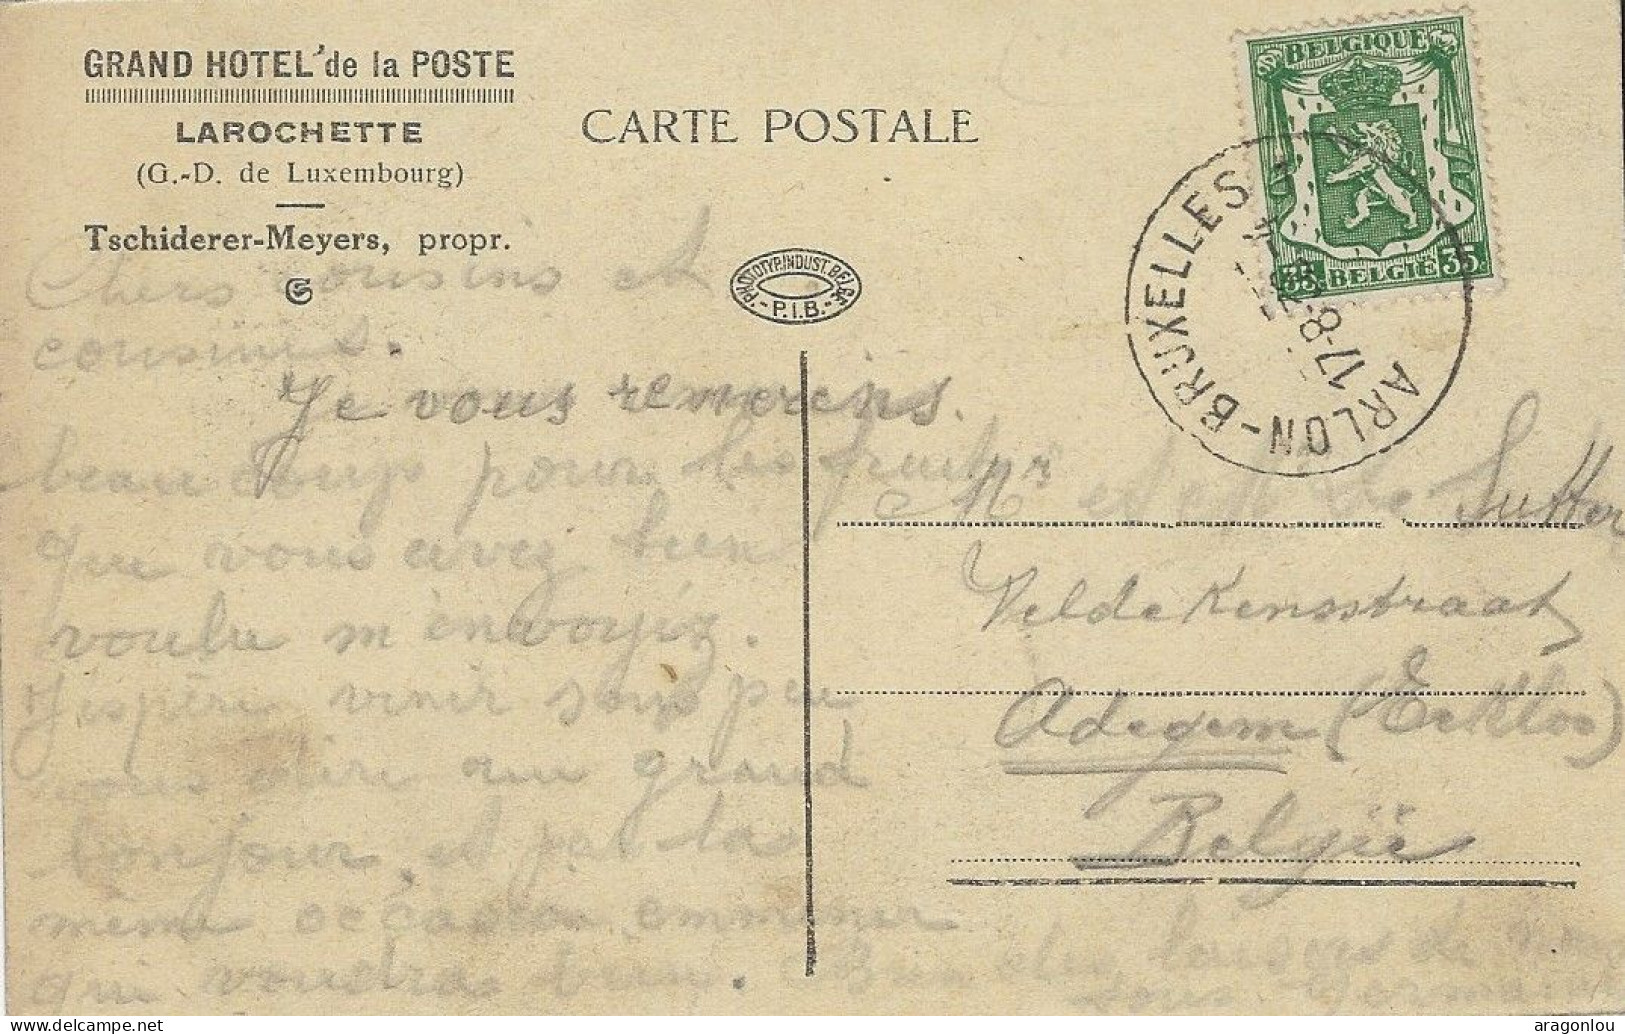 GRAND HOTEL de la POSTE
LAROCHETTE
(G.-D. de Luxembourg)
Tschiderer-Meyers, propr.
CARTE POSTALE
PHOTOTYP. INDUST. BELGE
- P.I.B. -
BELGIQUE
35 BELGIË 35
ARLON-BRUXELLES
17-8
Chers cousins et
cousines.
Je vous remercins
beaucoup pour les
que vous avez bien
voulu m'envoyez.
J'espère venir sous peu
vous dire un grand
bonjour, et par la
même occasion emmener
qui voudra bien. Bien des
Mr et M De Sutter
Veldekensstraat
Adegem (Eekloo)
België
delcampe.net
aragonlou